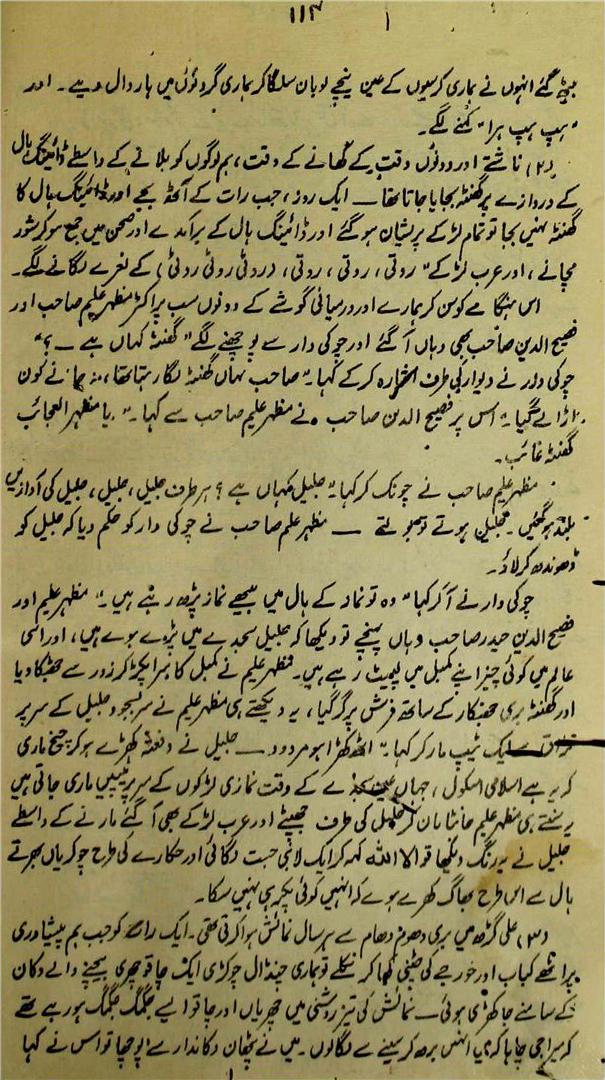 ۱۱۴
بیٹھ گئے انہوں نے ہماری کرسیوں کے عین نیچے لوبان سلگا کر ہماری گردنوں میں ہار ڈال دیے ۔ اور
"ہپ ہپ ہرا" کہنے لگے ۔
(۲) ناشتے اور دونوں وقت کے کھانے کے وقت، ہم لوگوں کو بلانے کے واسطے ڈائیننگ ہال
کے دروازے پر گھنٹہ بجایا جاتا تھا — ایک روز، جب رات کے آٹھ بجے اور ڈائیننگ ہال کا
گھنٹہ نہیں بجا تو تمام لڑکے پریشان ہو گئے اور ڈائیننگ ہال کے برآمدے اور صحن میں جمع ہو کر شور
مچانے ، اور عرب لڑکے " روتی ، روتی ، روتی ، (روٹی روٹی روٹی) کے نعرے لگانے لگے ۔
اس ہنگامے کو سن کر ہمارے اور درمیانی گوشے کے دونوں سب پراکٹر مظہر علیم صاحب اور
فصیح الدین صاحب بھی وہاں آ گئے اور چوکی دار سے پوچھنے لگے " گھنٹہ کہاں ہے — ؟"
چوکی دار نے دیوار کی طرف اشارہ کر کے کہا " صاحب یہاں گھنٹہ لگا رہتا تھا ، نہ جانے کون
اڑا لے گیا " اس پر فصیح الدین صاحب نے مظہر علیم صاحب سے کہا ۔ " یا مظہر العجائب
گھنٹہ غائب ۔
مظہر علیم صاحب نے چونک کر کہا " جلیل کہاں ہے ؟ ہر طرف جلیل ، جلیل ، جلیل کی آوازیں
بلند ہو گئیں ۔ جلیل ہوتے تو بولتے — مظہر علیم صاحب نے چوکی دار کو حکم دیا کہ جلیل کو
ڈھونڈھ کر لاؤ ۔
چوکی دار نے آ کر کہا " وہ تو نماز کے ہال میں بیٹھے نماز پڑھ رہے ہیں ۔" مظہر علیم اور
فصیح الدین حیدر صاحب وہاں پہنچے تو دیکھا کہ جلیل سجدے میں پڑے ہوے ہیں ، اور اسی
عالم میں کوئی چیز اپنے کمبل میں لپیٹ رہے ہیں ۔ مظہر علیم نے کمبل کا سرا پکڑ کر زور سے جھٹکا دیا
اور گھنٹہ بڑی جھنکار کے ساتھ فرش پر گر گیا ، یہ دیکھتے ہی مظہر علیم نے سر بسجود جلیل کے سر پر
ایک ٹیپ مار کر کہا " اٹھ کھڑا ہو مردود — جلیل نے دفعتہً کھڑے ہو کر چیخ ماری
کہ یہ ہے اسلامی اسکول ، جہاں عین سجدے کے وقت نمازی لڑکوں کے سر پر ٹیپیں ماری جاتی ہیں
یہ سنتے ہی مظہر علیم جانثا مان کر جلیل کی طرف جھپٹے اور عرب لڑکے بھی آ گئے مارنے کے واسطے
جلیل نے یہ رنگ دیکھا تو الا اللہ کہہ کر ایک لانبی جست لگائی اور چکارے کی طرح چوکڑیاں بھرتے
ہال سے اس طرح بھاگ کھڑے ہوے کہ انہیں کوئی پکڑ ہی نہیں سکا ۔
(۳) علی گڑھ میں بڑی دھوم دھام سے ہر سال نمائش ہوا کرتی تھی ۔ ایک رات کو جب ہم پیشاوری
پراٹھے کباب اور خورجے کی چٹنی کھا کر نکلے تو ہماری چنڈال چوکڑی ایک چاقو چھری بیچنے والے دکان
کے سامنے جا کھڑی ہوئی — نمائش کی تیز روشنی میں چھریاں اور چاقو ایسے جگمگ جگمگ ہو رہے تھے
کہ میرا جی چاہا کہ میں انہیں بڑھ کر سینے سے لگا لوں ۔ میں نے پٹھان دکاندار سے پوچھا تو اس نے کہا